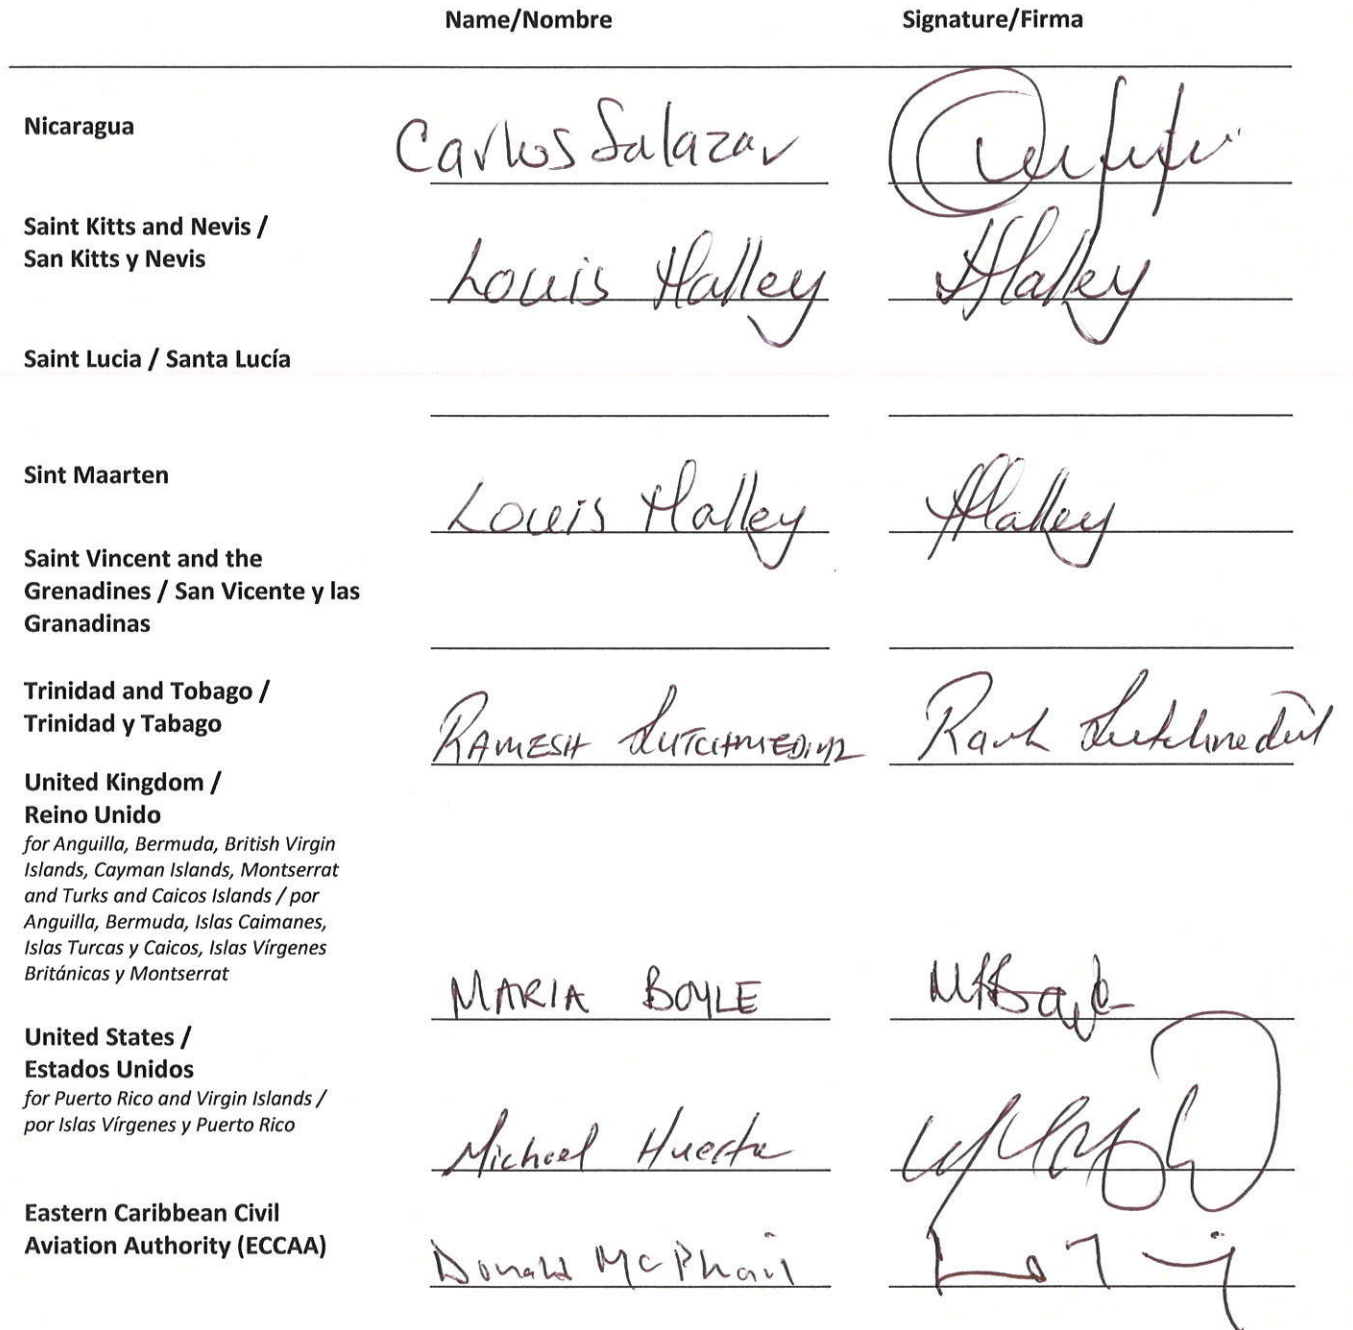 Name/Nombre Signature/Firma
Nicaragua Carlos Salazar
Saint Kitts and Nevis /
San Kitts y Nevis Louis Halley Halley
Saint Lucia / Santa Lucía
Sint Maarten Louis Halley Halley
Saint Vincent and the
Grenadines / San Vicente y las
Granadinas
Trinidad and Tobago /
Trinidad y Tabago RAMESH
United Kingdom /
Reino Unido
for Anguilla, Bermuda, British Virgin
Islands, Cayman Islands, Montserrat
and Turks and Caicos Islands / por
Anguilla, Bermuda, Islas Caimanes,
Islas Turcas y Caicos, Islas Vírgenes
Británicas y Montserrat MARIA BOYLE
United States /
Estados Unidos
for Puerto Rico and Virgin Islands /
por Islas Vírgenes y Puerto Rico Michael Huerta
Eastern Caribbean Civil
Aviation Authority (ECCAA) Donald McPhail